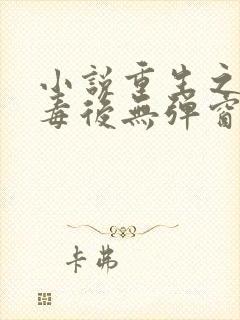 小說重生之
毒後無彈窗
卡弗